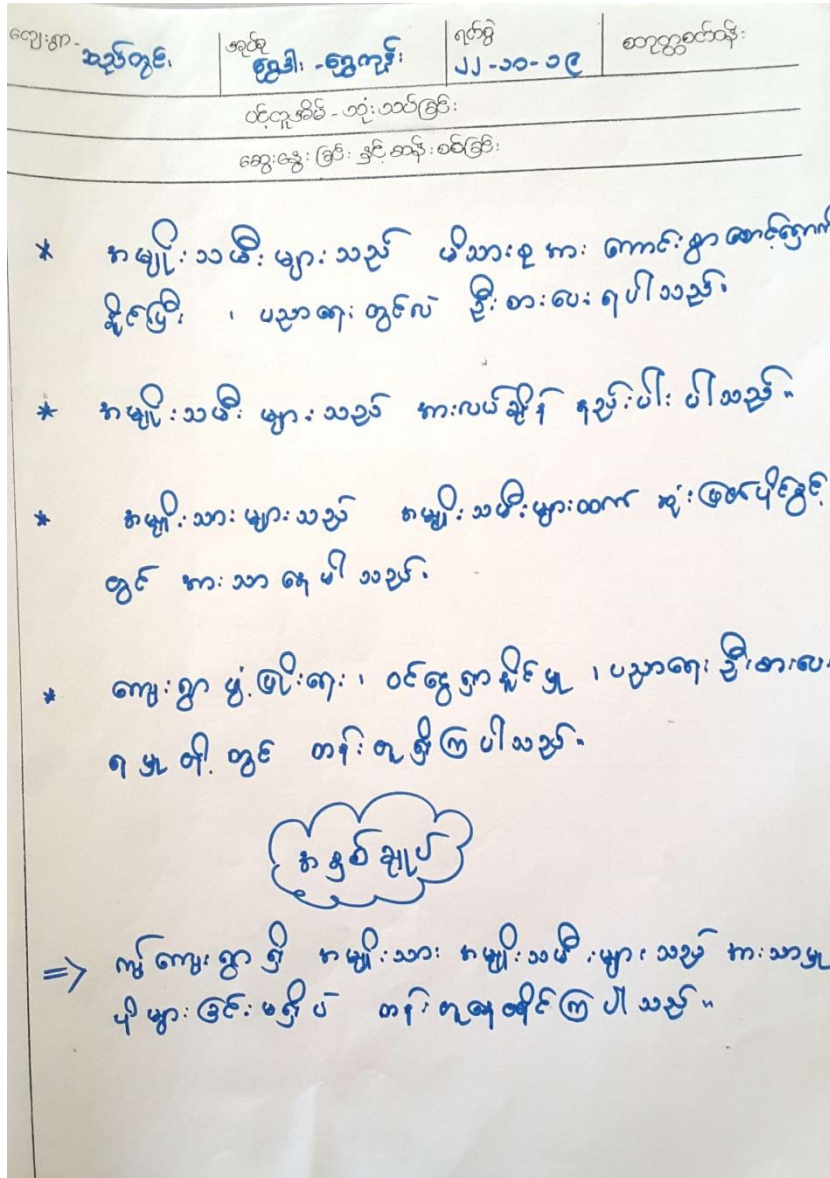 ကျေးရွာ - ဆည်တွင်း အုပ်စု ရွှေဒါး - ရွှေကျွန်း ရက်စွဲ ၂၂-၁၀-၁၉ စတုတ္ထစက်ဝန်း
ပင့်ကူအိမ် - သုံးသပ်ခြင်း
ဆွေးနွေးခြင်း နှင့် ဆန်းစစ်ခြင်း
* အမျိုးသမီး များ သည် မိသားစု အား ကောင်းစွာ စောင့်ရှောက်
နိုင်ပြီး ၊ ပညာရေး တွင်လဲ ဦးစားပေး ရပါသည်။
* အမျိုးသမီး များ သည် အားလပ်ချိန် နည်းပါး ပါသည်။
* အမျိုးသား များ သည် အမျိုးသမီးများထက် ဆုံးဖြတ်ပိုင်ခွင့်
တွင် အားသာ နေ ပါ သည်။
* ကျေးရွာ ဖွံ့ဖြိုးရေး ၊ ဝင်ငွေရှာနိုင်မှု ၊ ပညာရေး ဦးစားပေး
ရ မှု တို့ တွင် တန်းတူ ရှိကြ ပါသည်။
အနှစ်ချုပ်
=> ကျေးရွာ ရှိ အမျိုးသား အမျိုးသမီး များ သည် အားသာမှု
ပို များ ခြင်း မရှိပဲ တန်းတူနေထိုင်ကြ ပါ သည်။